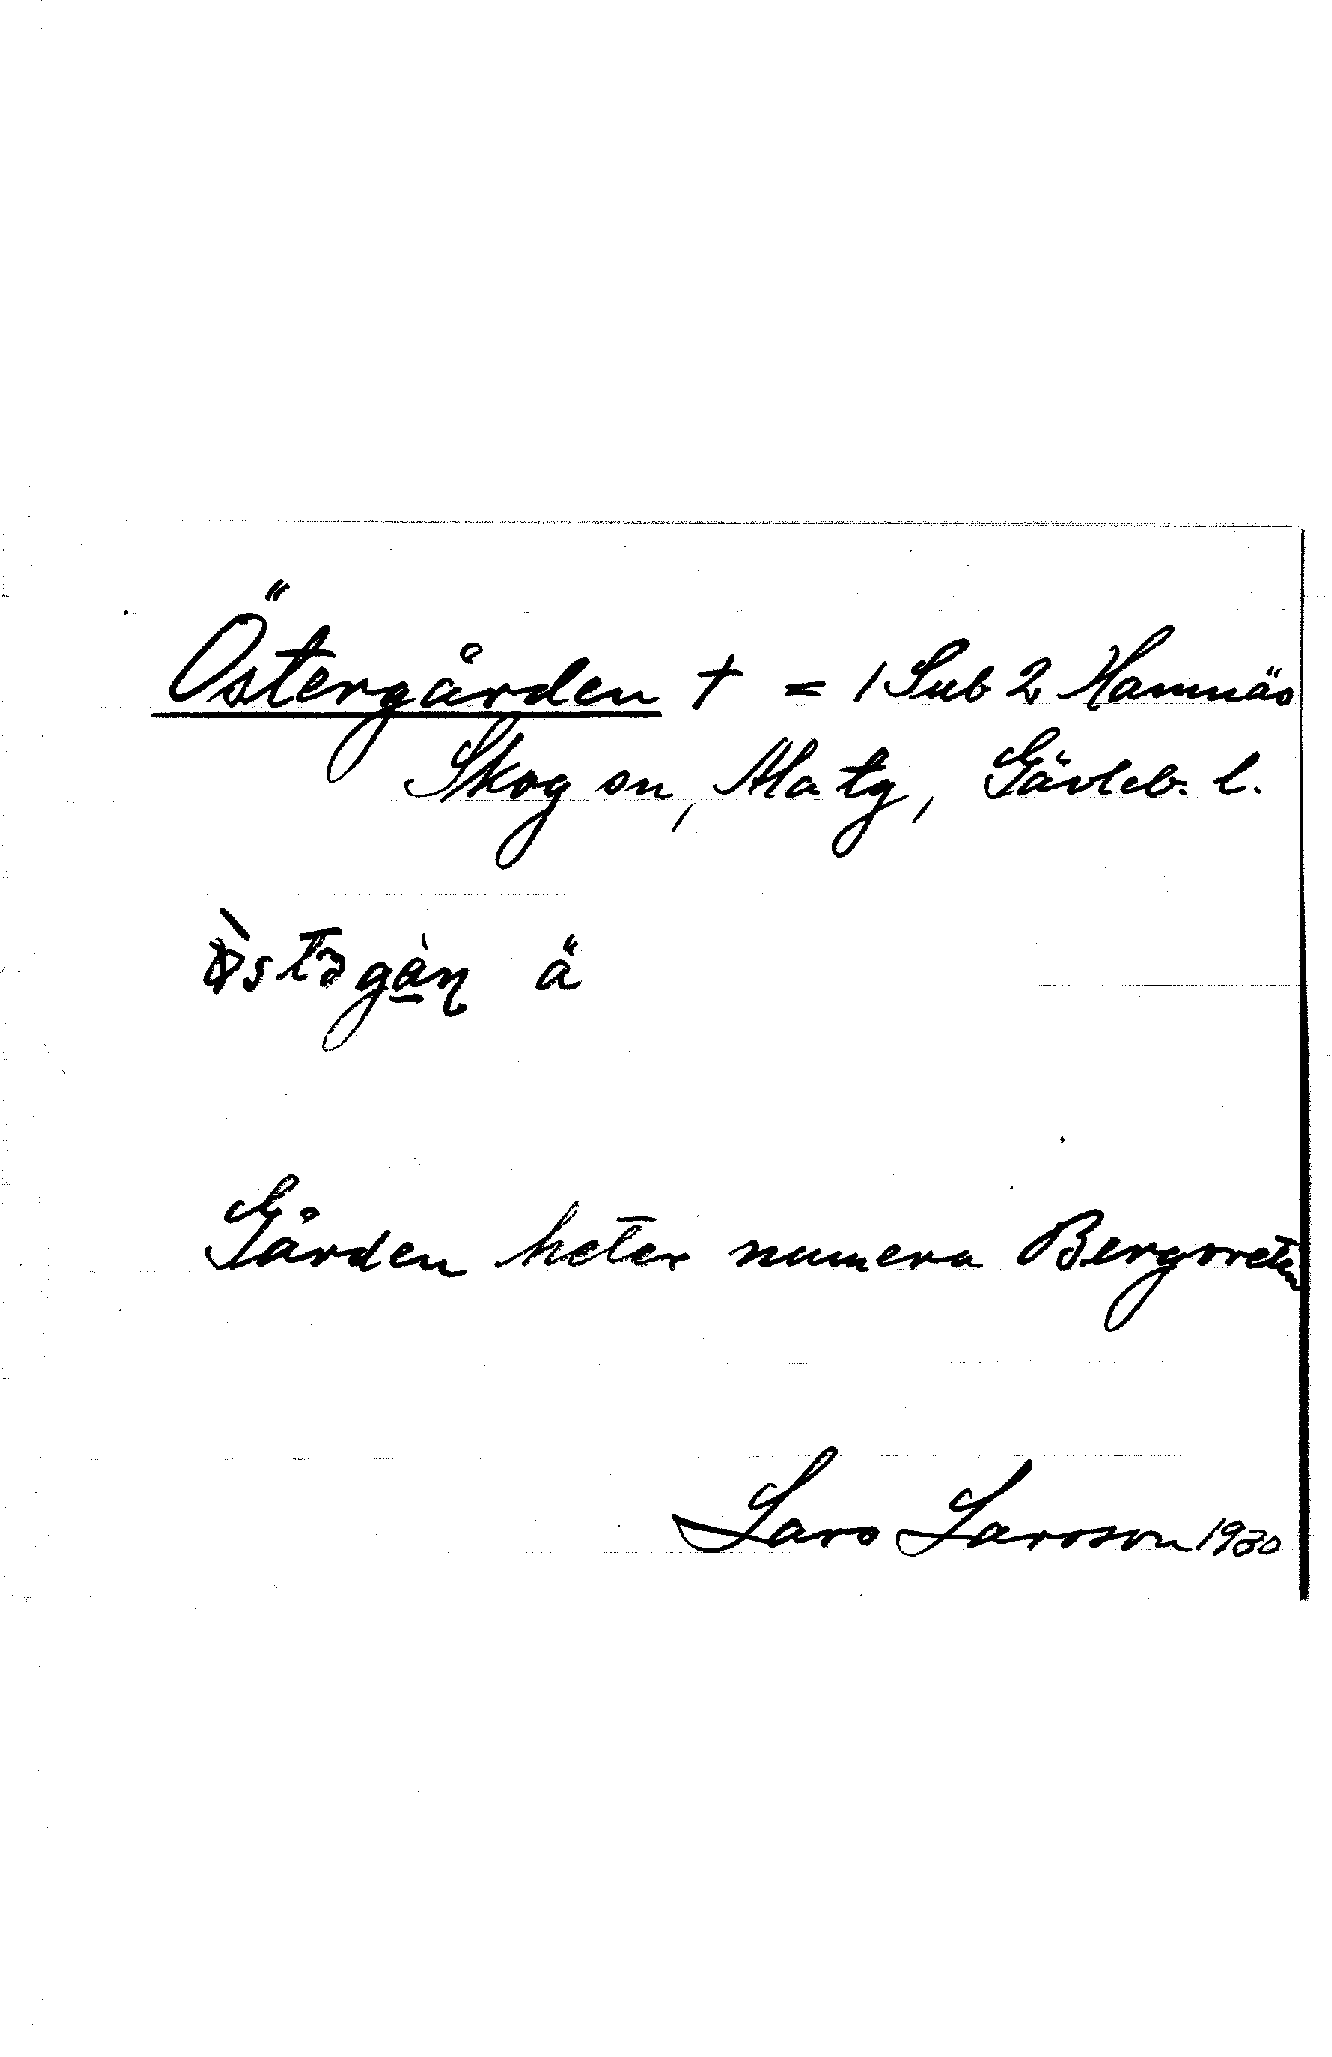 Östergården † = 1 Sub 2 Hamnäs
Skog sn, Ala tg, Gävleb. l.
ä
Gården heter numera Bergvreten
Lars Larsson 1930